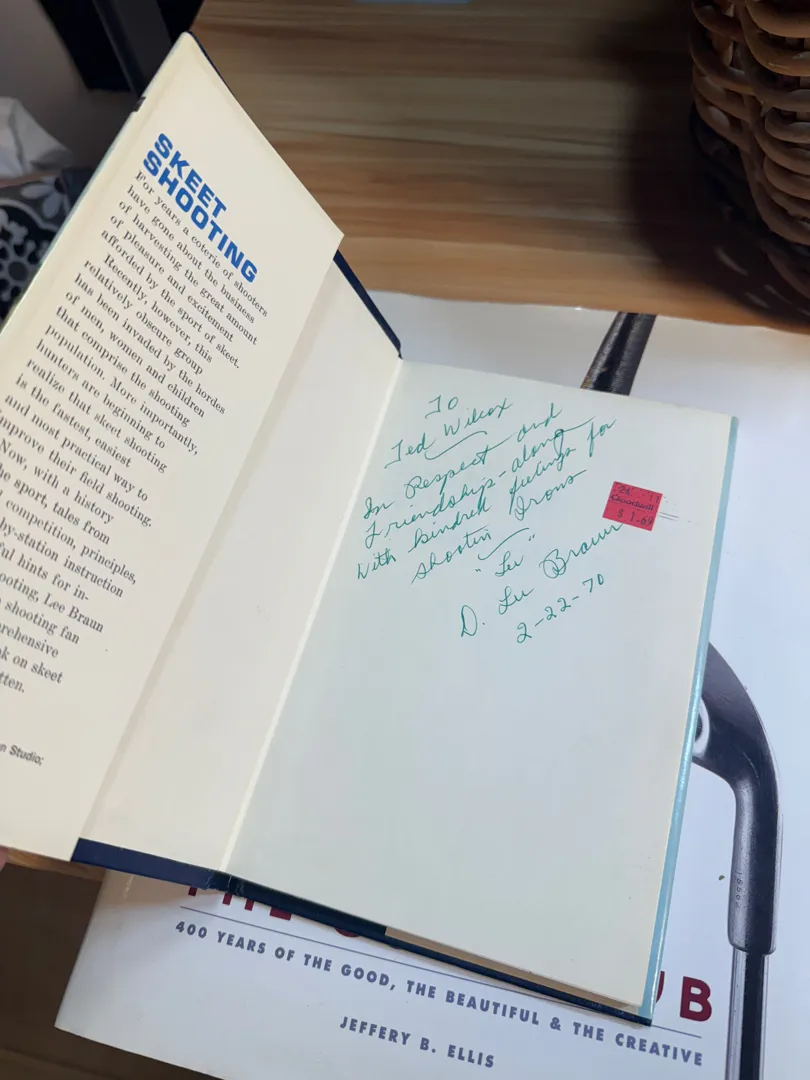 SKEET
SHOOTING
For years a coterie of shooters
have gone about the business
of harvesting the great amount
of pleasure and excitement
afforded by the sport of skeet.
Recently, however, this
relatively obscure group
has been invaded by the hordes
of men, women and children
that comprise the shooting
population. More importantly,
hunters are beginning to
realize that skeet shooting
is the fastest, easiest
and most practical way to
improve their field shooting.
Now, with a history
sport, tales from
competition, principles,
by-station instruction
hints for in-
Lee Braun
shooting fan
on skeet
Studio:
To
Ted Wilcox
In Respect and
Friendship - along
With kindred feelings for
shootin Irons
"Lee"
D. Lee Braun
2-22-70
Goodwill
$ 1.69
400 YEARS OF THE GOOD, THE BEAUTIFUL & THE CREATIVE
JEFFERY B. ELLIS